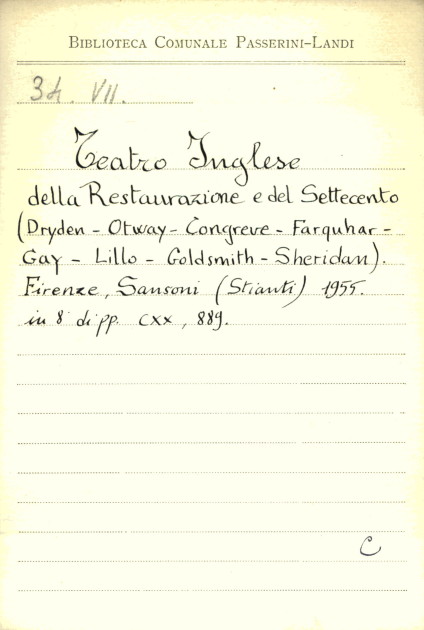 BIBLIOTECA COMUNALE PASSERINI-LANDI
34. VII.
Teatro Inglese
della Restaurazione e del Settecento
(Dryden - Otway - Congreve - Farquhar -
Gay - Lillo - Goldsmith - Sheridan).
Firenze, Sansoni (Stianti) 1955.
in 8° di pp. CXX, 889.
C